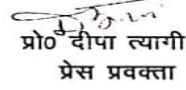 प्रो० दीपा त्यागी
प्रेस प्रवक्ता